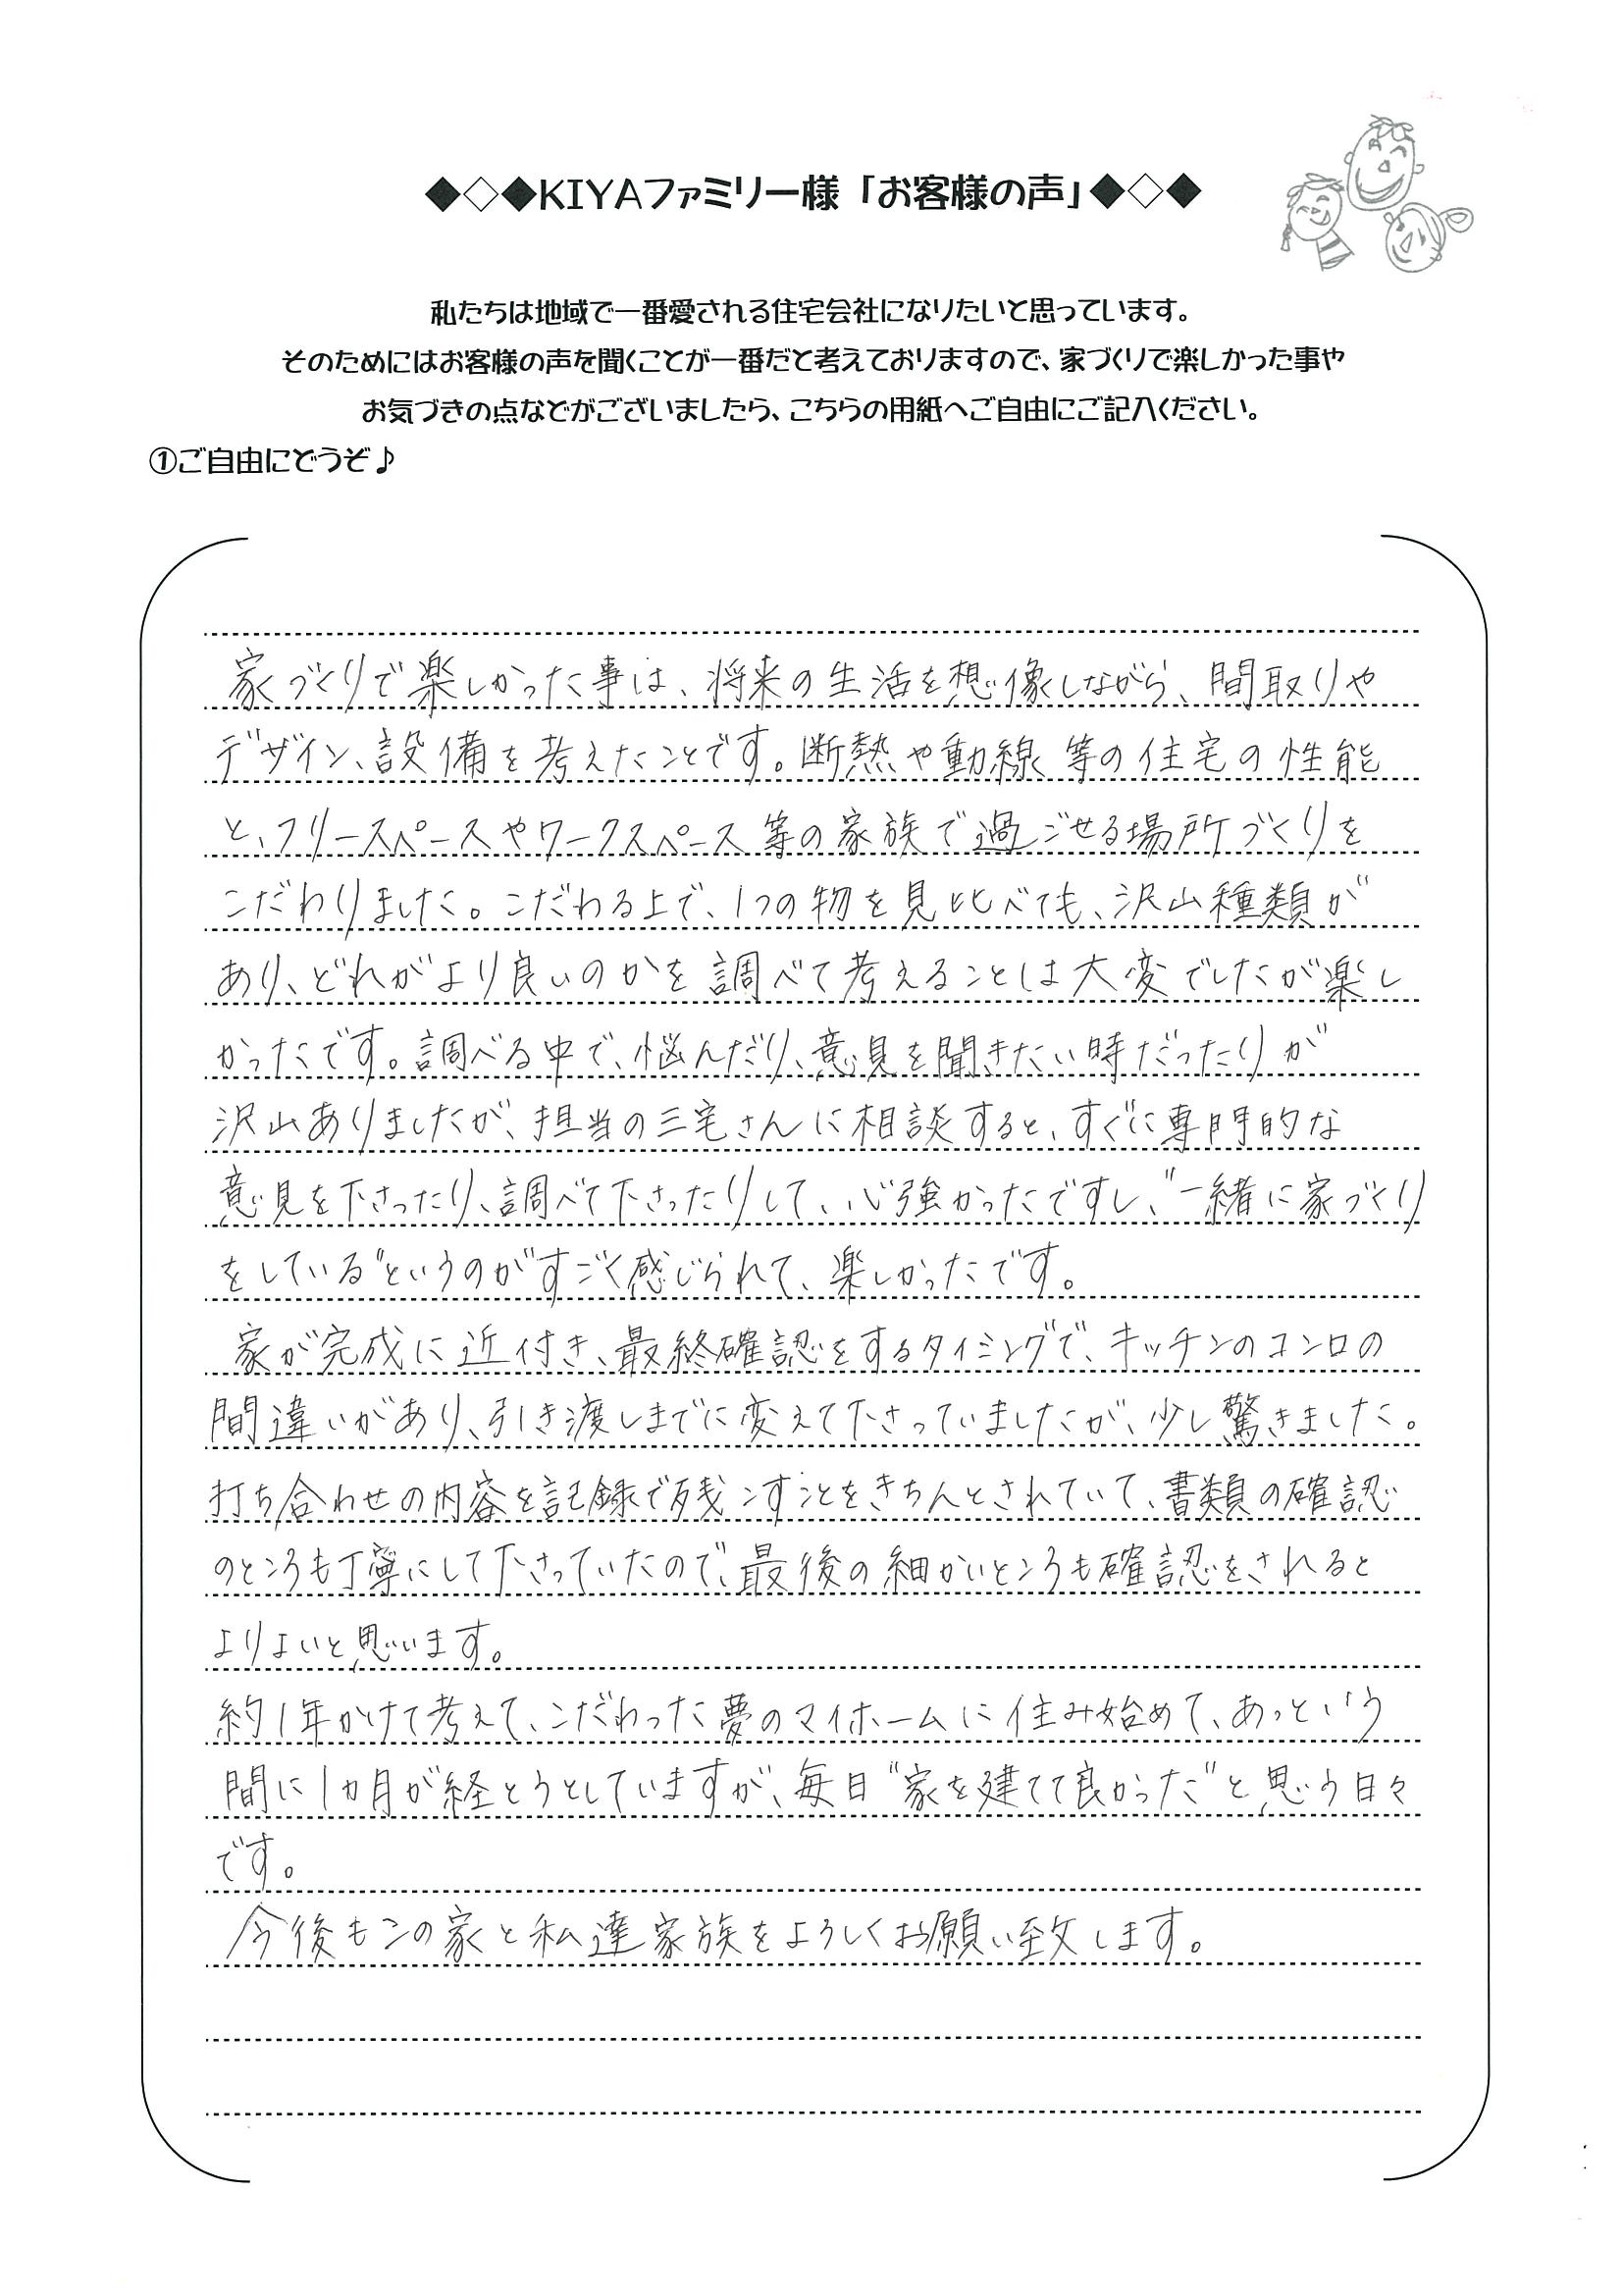 ◆◇◆KIYAファミリー様「お客様の声」◆◇◆
私たちは地域で一番愛される住宅会社になりたいと思っています。
そのためにはお客様の声を聞くことが一番だと考えておりますので、家づくりで楽しかった事や
お気づきの点などがございましたら、こちらの用紙へご自由にご記入ください。
①ご自由にどうぞ♪
家づくりで楽しかった事は、将来の生活を想像しながら、間取りや
デザイン、設備を考えたことです。断熱や動線等の住宅の性能
と、フリースペースやワークスペース等の家族で過ごせる場所づくりを
こだわりました。こだわる上で、1つの物を見比べても、沢山種類が
あり、どれがより良いのかを調べて考えることは大変でしたが楽し
かったです。調べる中で、悩んだり、意見を聞きたい時だったりが
沢山ありましたが、担当の三宅さんに相談すると、すぐに専門的な
意見を下さったり、調べて下さったりして、心強かったですし、"一緒に家づくり
をしている"というのがすごく感じられて、楽しかったです。
家が完成に近付き、最終確認をするタイミングで、キッチンのコンロの
間違いがあり、引き渡しまでに変えて下さっていましたが、少し驚きました。
打ち合わせの内容を記録で残こすことをきちんとされていて、書類の確認
のところも丁寧にして下さっていたので、最後の細かいところも確認をされると
よりよいと思います。
約1年かけて考えて、こだわった夢のマイホームに住み始めて、あっという
間に1カ月が経とうとしていますが、毎日"家を建てて良かった"と思う日々
です。
今後もこの家と私達家族をよろしくお願い致します。